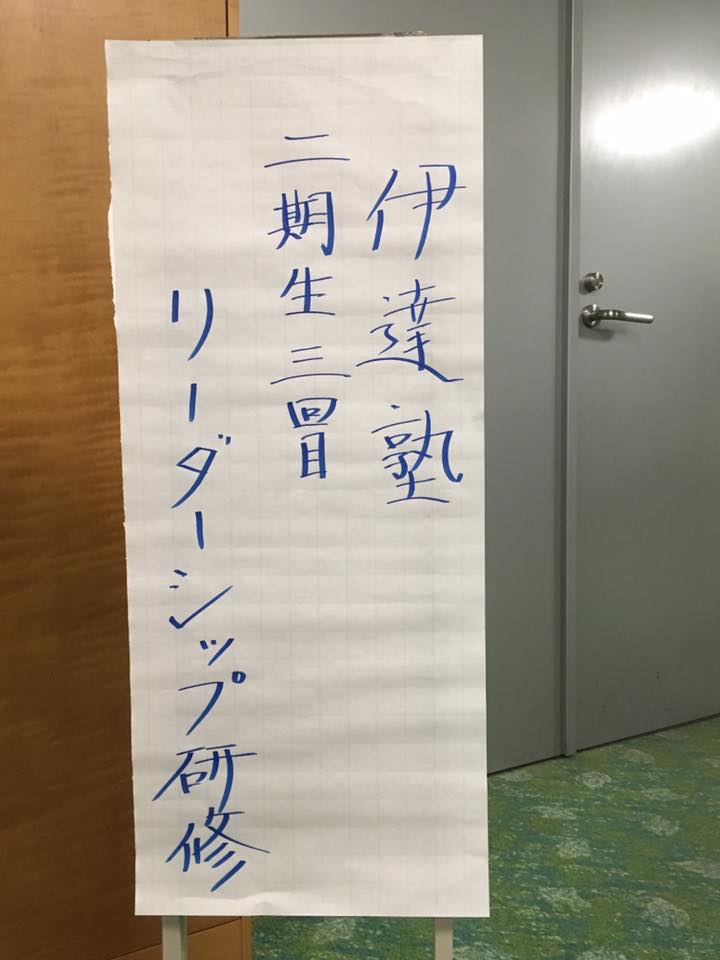 伊達塾
二期生三回目
リーダーシップ研修